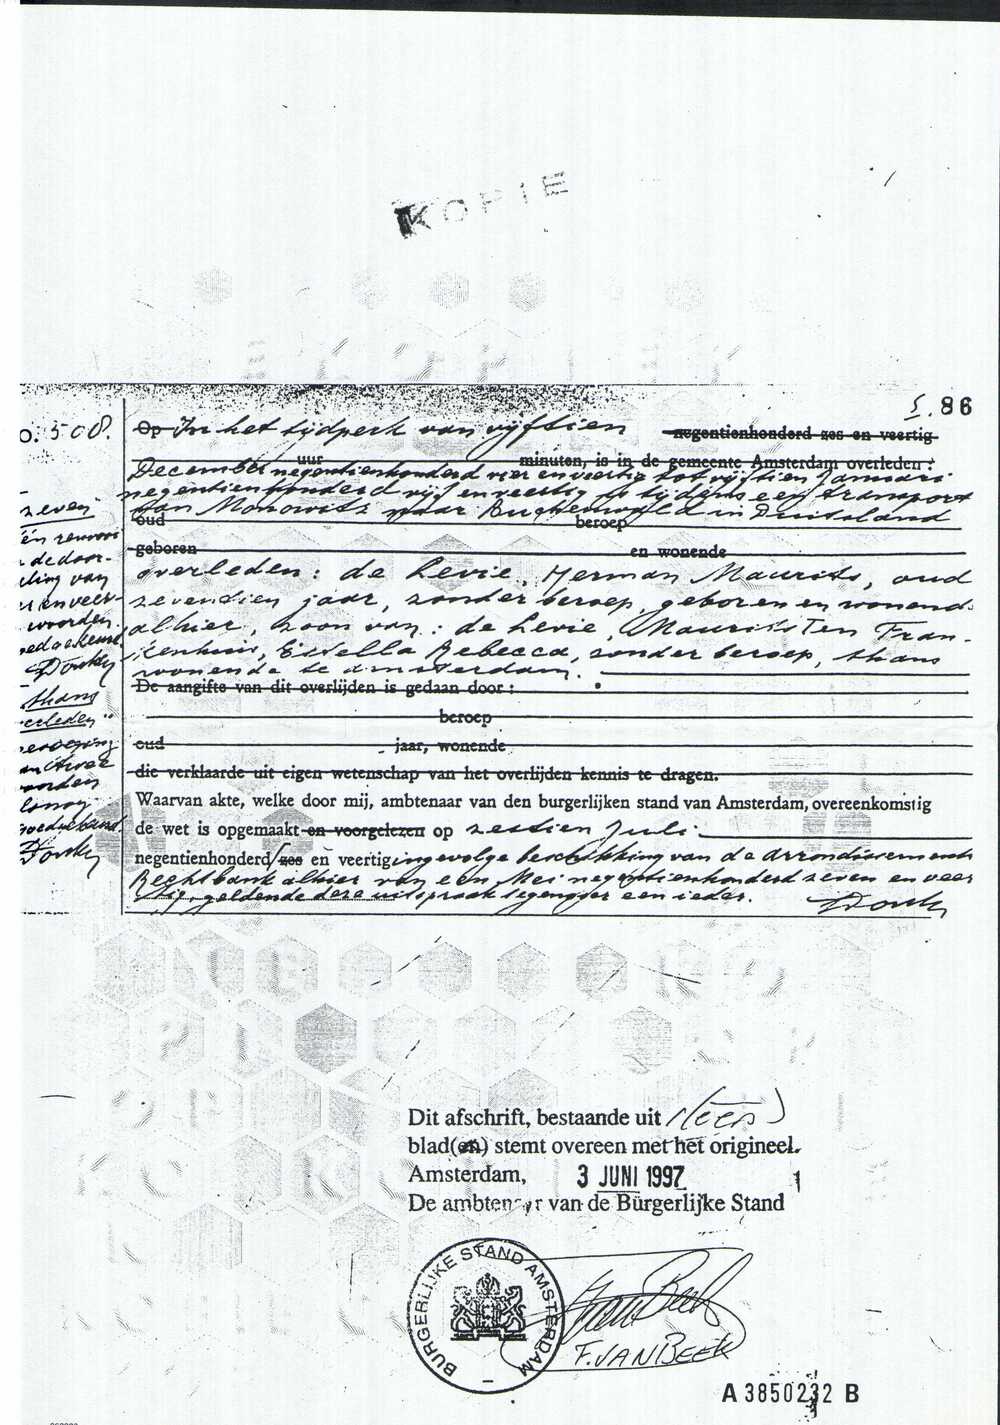 KOPIE
5.86
o. 508.
Op In het tijdperk van vijftien negentienhonderd zes en veertig
uur minuten, is in de gemeente Amsterdam overleden:
December negentienhonderd vier en veertig tot vijftien Januari
negentienhonderd vijf en veertig is tijdens een transport
van Monowitz naar Buchenwald in Duitsland
oud beroep
geboren en wonende
overleden: de Levie, Herman Maurits, oud
zeventien jaar, zonder beroep, geboren en wonend
alhier, zoon van: de Levie, Maurits Ten Fran-
kenhuis, Estella Rebecca, zonder beroep, thans
wonende te Amsterdam.
De aangifte van dit overlijden is gedaan door:
beroep
oud jaar, wonende
die verklaarde uit eigen wetenschap van het overlijden kennis te dragen.
Waarvan akte, welke door mij, ambtenaar van den burgerlijken stand van Amsterdam, overeenkomstig
de wet is opgemaakt en voorgelezen op zestien Juli
negentienhonderd zes en veertig ingevolge beschikking van de Arrondissements
Rechtbank alhier van een Mei negentienhonderd zeven en veer
tig, geldende deze uitspraak tegenover een ieder.
zeven
en renvooi
de door-
ling van
en veer-
woorden
goedgekeurd
thans
overleden"
woorden
goedgekeurd.
Dit afschrift, bestaande uit 1 (een)
blad(en) stemt overeen met het origineel.
Amsterdam, 3 JUNI 1997
De ambtenaar van de Burgerlijke Stand
BURGERLIJKE STAND AMSTERDAM
F. VAN BEEK
A 3850232 B